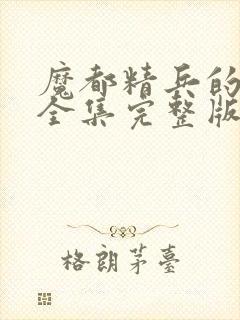 魔都精兵的
全集完整版
格朗茅臺